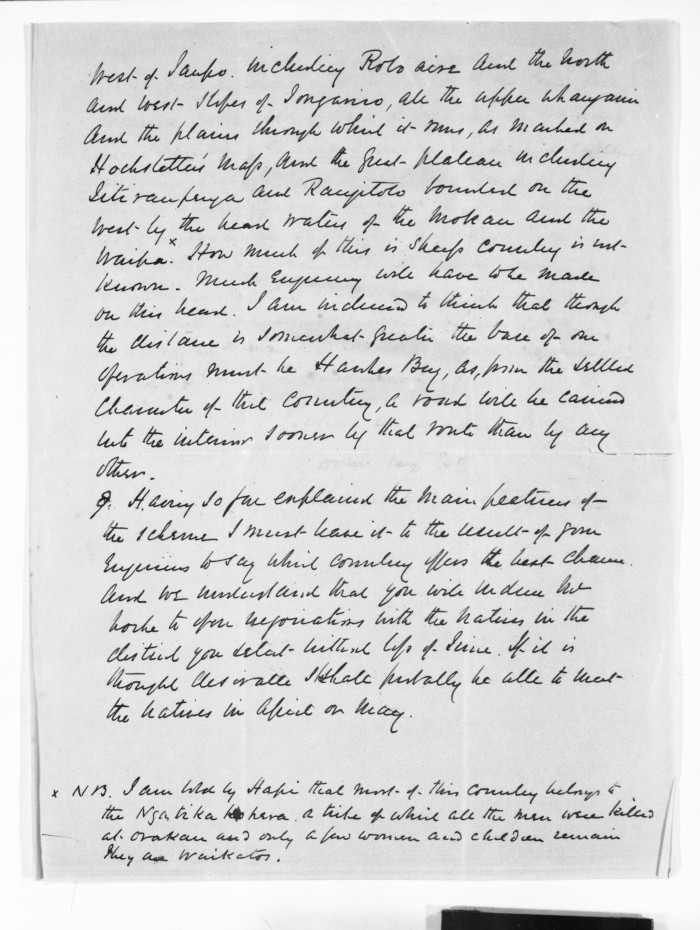 West of Taupo. including Roto aira and the North
and west slopes of Tongariro, all the upper Whanganui
And the plains through which it runs, as marked on
Hochstetter's map, and the great plateau including
Titiraupenga and Rangitoto bounded on the
west by the head waters of the Mokau and the
Waipa.x How much of this is sheep country is not
known. Much Enquiry will have to be made
on this head. I am inclined to think that though
the distance is somewhat greater the base of our
operations must be Hawkes Bay, as, from the settled
Character of that Country, a road will be carried
into the interior sooner by that route than by any
other.
9. Having so far explained the main features of
the scheme I must leave it to the result of your
Enquiries to say which country offers the best chance.
And we understand that you will induce
to open negociations with the Natives in the
district you select without loss of time. If it is
thought desirable I shall probably be able to meet
the Natives in April or May.
x NB. I am told by Hapi that most of this Country belongs to
the Ngatikakohera. a tribe of which all the men were killed
at Orakau and only a few women and children remain
they are Waikatos.